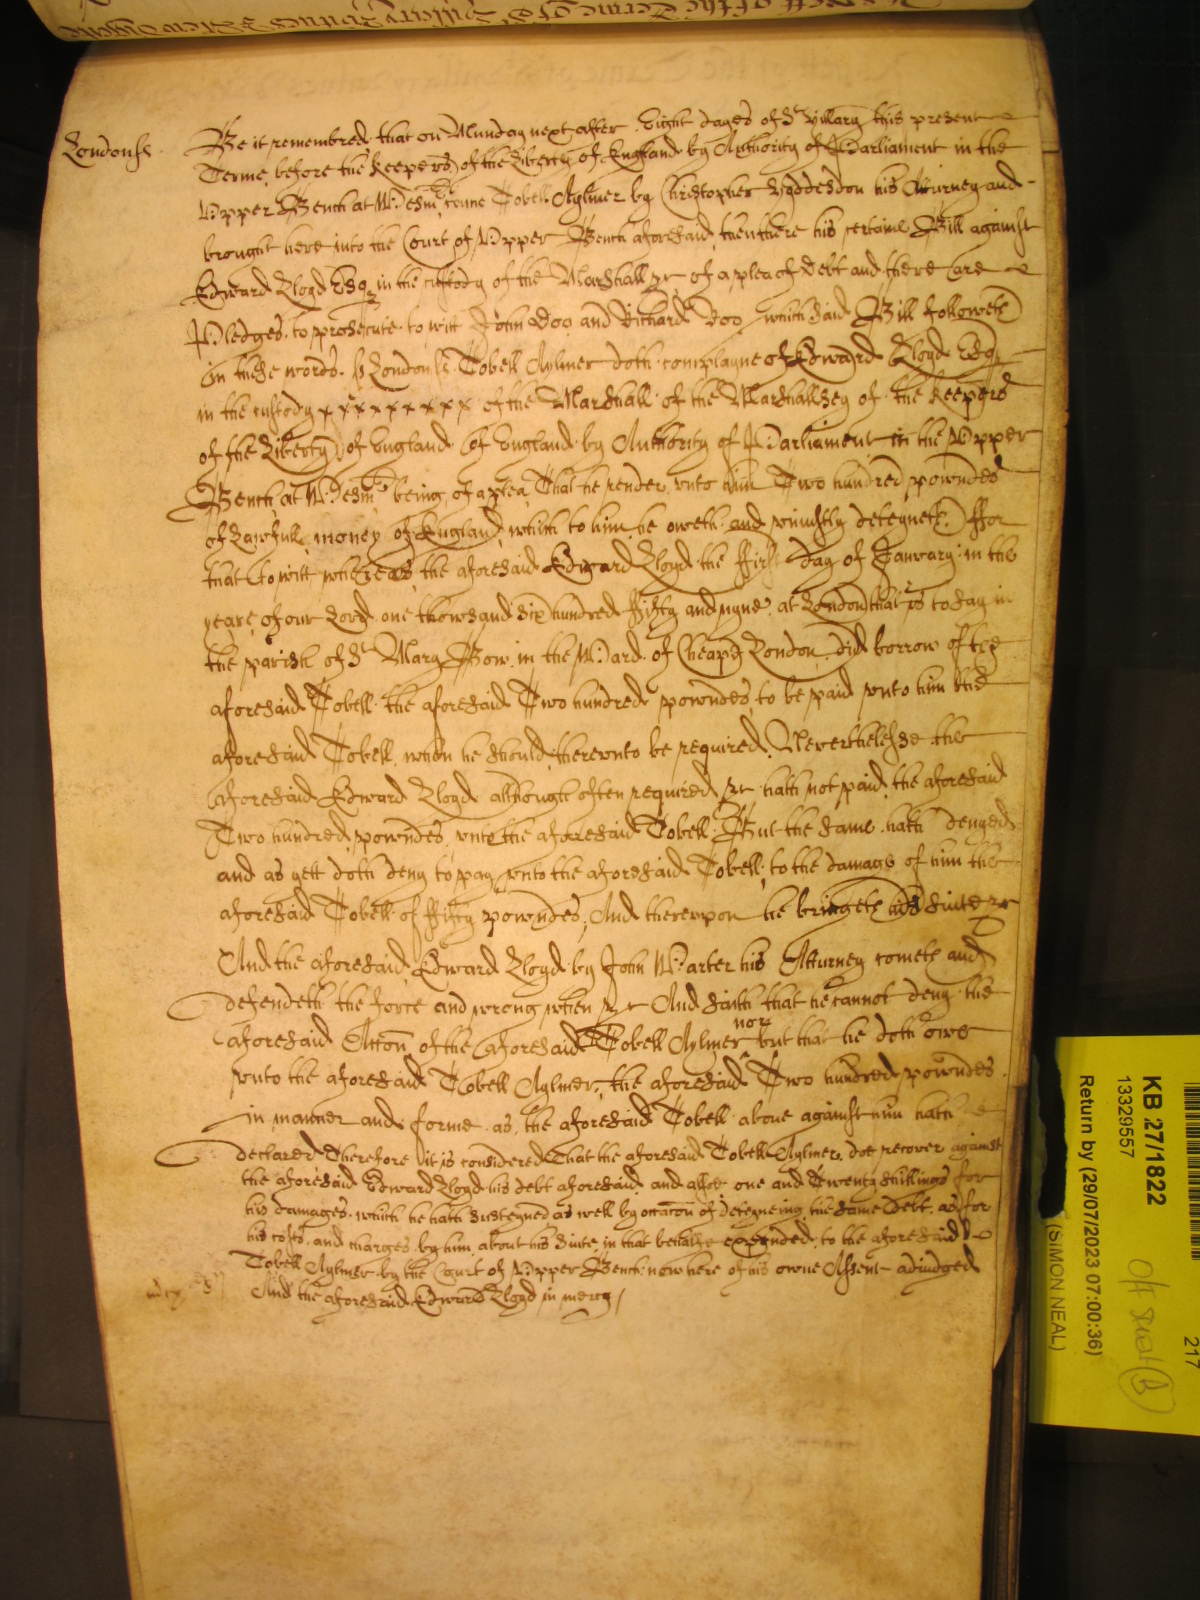 London ss.
Be it remembred that on Munday next after Eight dayes of St Hillary this present
Terme before the Keepers of the Liberty of England by Authority of Parliament in the
Vpper Bench at Westmr came Tobell Aylmer by Christopher Hoddesdon his Atturney and
brought here into the Court of Vpper Bench aforesaid then there his certaine Bill against
Edward Lloyd Esqr in the custody of the Marshall &c of a plea of debt and there are
Pledges to prosecute to witt John Doo and Richard Roo which said Bill followeth
in these words ss London ss Tobell Aylmer doth complayne of Edward Lloyd Esqr
in the custody x x x x x x x x of the Marshall of the Marshallsey of the Keepers
of the Liberty of England of England by Authority of Parliament in the Vpper
Bench at Westmr being of a plea That he render vnto him Two hundred powndes
of Lawfull money of England which to him he oweth and vniustly deteyneth Ffor
that to witt whereas the aforesaid Edward Lloyd the ffirst day of January in the
yeare of our Lord one thowsand six hundred ffifty and nyne at London that is to say in
the parish of St Mary Bow in the Ward of Cheape London did borrow of the
aforesaid Tobell the aforesaid Two hundred powndes to be paid vnto him the
aforesaid Tobell when he should therevnto be required Neverthelesse the
aforesaid Edward Lloyd although often required &c hath not paid the aforesaid
Two hundred powndes vnto the aforesaid Tobell But the same hath denyed
and as yett doth deny to pay vnto the aforesaid Tobell to the damage of him the
aforesaid Tobell of ffifty powndes And therevpon he bringeth his suite &c
And the aforesaid Edward Lloyd by John Warter his Atturney cometh and
defendeth the force and wrong when &c And saith that he cannot deny the
aforesaid Accon of the aforesaid Tobell Aylmer nor but that he doth owe
vnto the aforesaid Tobell Aylmer the aforesaid Two hundred powndes
in manner and forme as the aforesaid Tobell above against him hath
declared Therefore it is considered That the aforesaid Tobell Aylmer doe recover against
the aforesaid Edward Lloyd his debt aforesaid and allsoe one and Twenty shillings for
his damages which he hath susteyned as well by occacon of deteyneing the same Debt as for
his costs and charges by him about his suite in that behalfe expended to the aforesaid
Tobell Aylmer by the Court of Vpper Bench now here of his owne Assent adiudged
And the aforesaid Edward Lloyd in mercy /
217
KB 27/1822
13329557
Return by (29/07/2023 07:00:36)
(SIMON NEAL)